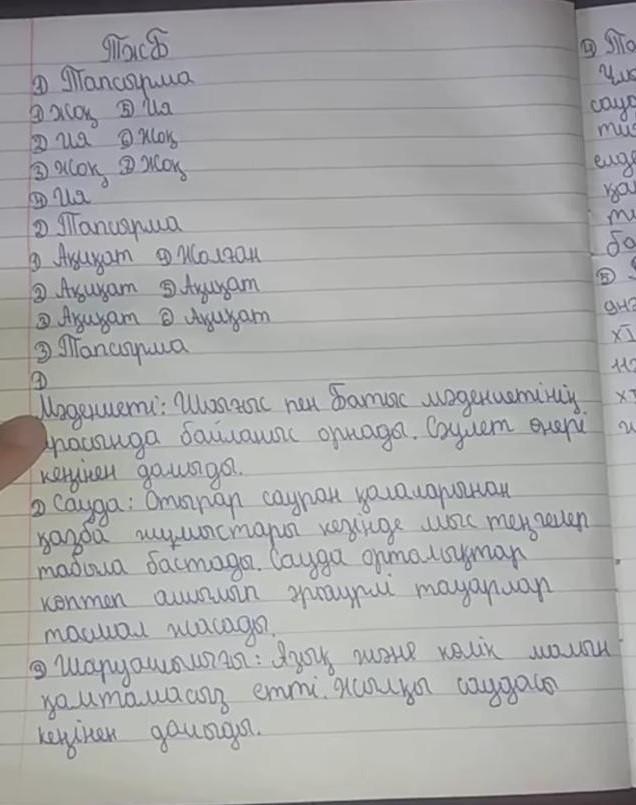 ТжБ
① Тапсырма
① Жоқ ⑤ Ия
② Ия ⑥ Жоқ
③ Жоқ ⑦ Жоқ
④ Ия
② Тапсырма
① Ақиқат ④ Жалған
② Ақиқат ⑤ Ақиқат
③ Ақиқат ⑥ Ақиқат
③ Тапсырма
①
Мәдениеті: Шығыс пен Батыс мәдениетінің
арасында байланыс орнады. Сәулет өнері
кеңінен дамыды.
② Сауда: Отырар сауран қалаларынан
қазба жұмыстары кезінде мыс теңгелер
табыла бастады. Сауда орталықтар
көптеп ашылып әртүрлі тауарлар
тасмал жасады.
③ Шаруашылығы: Азық және көлік малын
қамтамасыз етті. Жылқы саудасы
кеңінен дамыды.
④ Та
сау
елде
қал
ба
⑤
XI